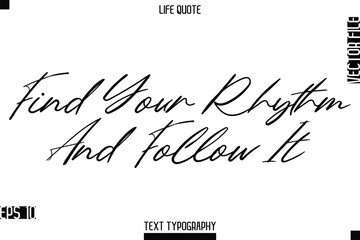 LIFE QUOTE
VECTOR FILE
Find Your Rhythm
And Follow It
EPS 10
TEXT TYPOGRAPHY